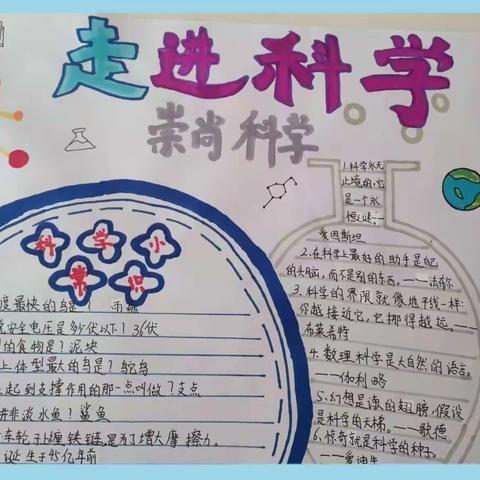 走进科学
崇尚科学
科学小
常识
度最快的鸟是？雨燕
安全电压是多少伏以下？36伏
的食物是？泥块
上体型最大的鸟是？鸵鸟
起到支撑作用的那一点叫做？支点
并非淡水鱼？鲨鱼
车轮子上缠铁链是为了增大摩擦力。
诞生于45亿年前
1.科学永无
止境的，它
是一个永
恒之谜。
——爱因斯坦
2.在科学上最好的助手是自己
的头脑，而不是别的东西。——法布尔
3.科学的界限就像地平线一样：
你越接近它，它挪得越远。——
布莱希特
4.数理科学是大自然的语言。
——伽利略
5.幻想是诗人的翅膀，假设
是科学的天梯。——歌德
6.惊奇就是科学的种子。
——爱迪生